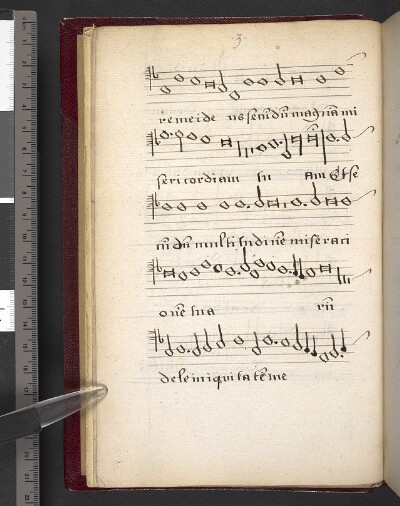 3
re mei de us secūdū magnā mi
seri cordiam tu am Et se
cū dū multi tudi nē mise raci
onē tua rū
dele in iqui ta tē me